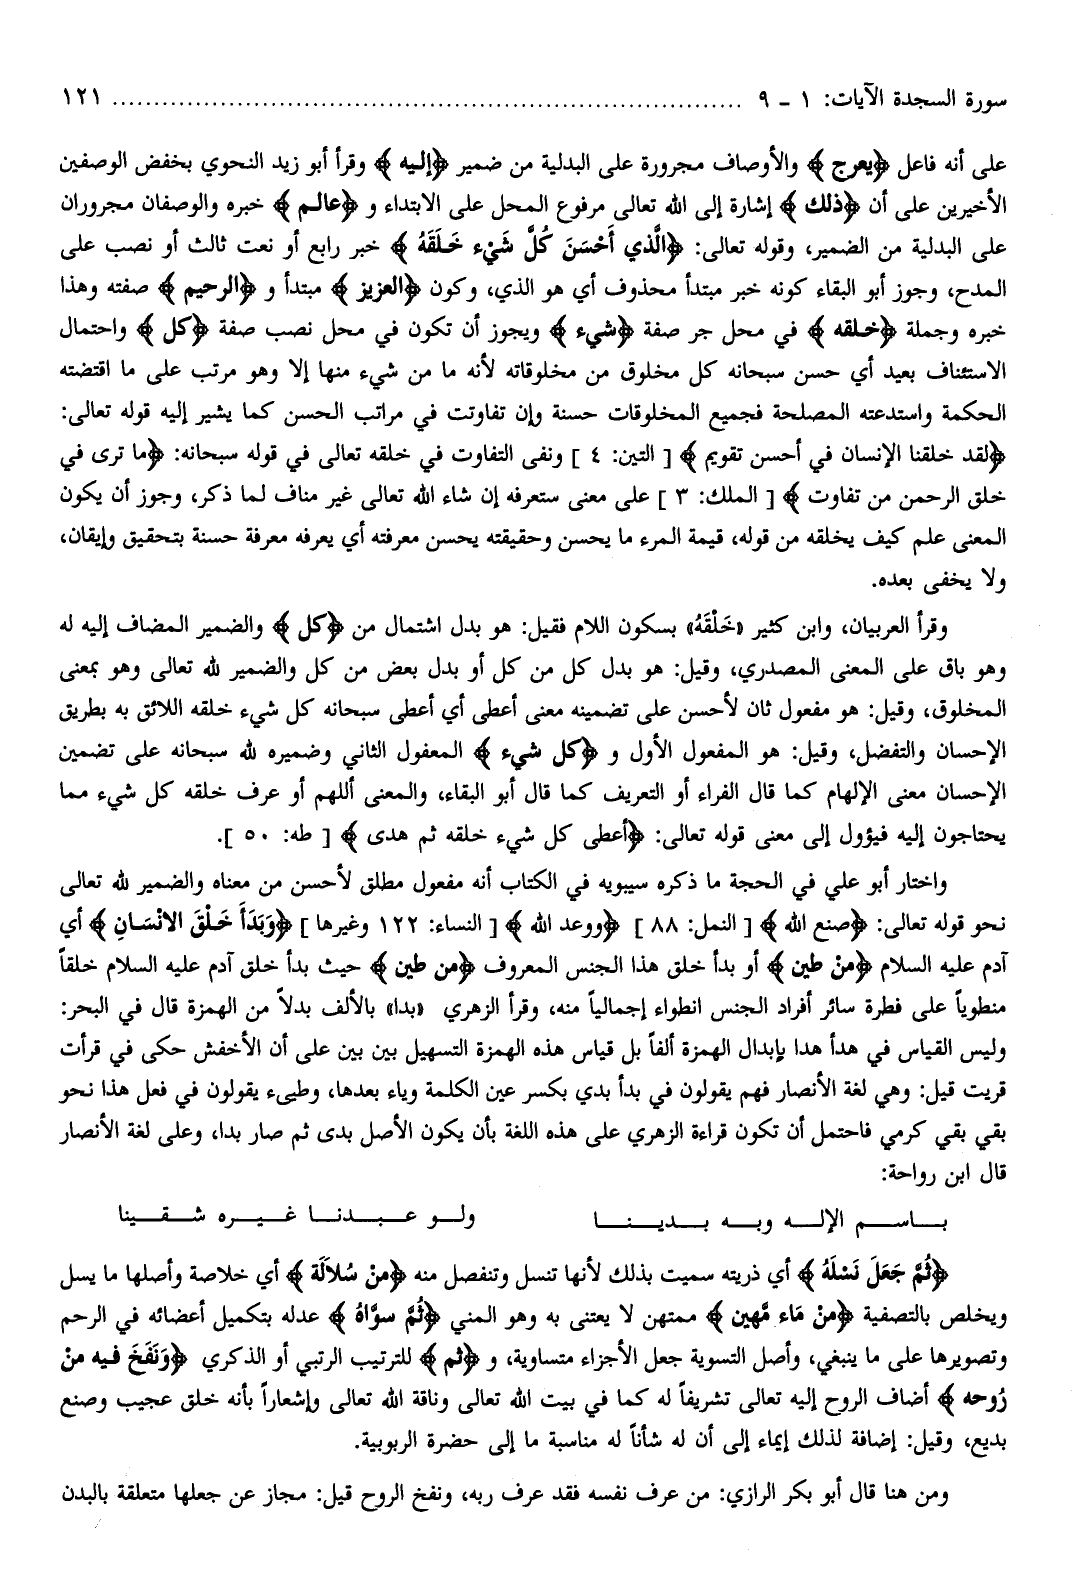 سورة السجدة الآيات: ١ - ٩ ........................................................................ ١٢١
على أنه فاعل ﴿يعرج﴾ والأوصاف مجرورة على البدلية من ضمير ﴿إليه﴾ وقرأ أبو زيد النحوي بخفض الوصفين
الأخيرين على أن ﴿ذلك﴾ إشارة إلى الله تعالى مرفوع المحل على الابتداء و ﴿عالم﴾ خبره والوصفان مجروران
على البدلية من الضمير، وقوله تعالى: ﴿الَّذي أَحْسَنَ كُلَّ شَيْءٍ خَلَقَهُ﴾ خبر رابع أو نعت ثالث أو نصب على
المدح، وجوز أبو البقاء كونه خبر مبتدأ محذوف أي هو الذي، وكون ﴿العزيز﴾ مبتدأ و ﴿الرحيم﴾ صفته وهذا
خبره وجملة ﴿خلقه﴾ في محل جر صفة ﴿شيء﴾ ويجوز أن تكون في محل نصب صفة ﴿كل﴾ واحتمال
الاستئناف بعيد أي حسن سبحانه كل مخلوق من مخلوقاته لأنه ما من شيء منها إلا وهو مرتب على ما اقتضته
الحكمة واستدعته المصلحة فجميع المخلوقات حسنة وإن تفاوتت في مراتب الحسن كما يشير إليه قوله تعالى:
﴿لقد خلقنا الإنسان في أحسن تقويم﴾ [ التين: ٤ ] ونفى التفاوت في خلقه تعالى في قوله سبحانه: ﴿ما ترى في
خلق الرحمن من تفاوت﴾ [ الملك: ٣ ] على معنى ستعرفه إن شاء الله تعالى غير مناف لما ذكر، وجوز أن يكون
المعنى علم كيف يخلقه من قوله، قيمة المرء ما يحسن وحقيقته يحسن معرفته أي يعرفه معرفة حسنة بتحقيق وإيقان،
ولا يخفى بعده.
وقرأ العربيان، وابن كثير «خَلْقَهُ» بسكون اللام فقيل: هو بدل اشتمال من ﴿كل﴾ والضمير المضاف إليه له
وهو باق على المعنى المصدري، وقيل: هو بدل كل من كل أو بدل بعض من كل والضمير لله تعالى وهو بمعنى
المخلوق، وقيل: هو مفعول ثان لأحسن على تضمينه معنى أعطى أي أعطى سبحانه كل شيء خلقه اللائق به بطريق
الإحسان والتفضل، وقيل: هو المفعول الأول و ﴿كل شيء﴾ المعفول الثاني وضميره لله سبحانه على تضمين
الإحسان معنى الإلهام كما قال الفراء أو التعريف كما قال أبو البقاء، والمعنى أللهم أو عرف خلقه كل شيء مما
يحتاجون إليه فيؤول إلى معنى قوله تعالى: ﴿أعطى كل شيء خلقه ثم هدى﴾ [ طه: ٥٠ ].
واختار أبو علي في الحجة ما ذكره سيبويه في الكتاب أنه مفعول مطلق لأحسن من معناه والضمير لله تعالى
نحو قوله تعالى: ﴿صنع الله﴾ [ النمل: ٨٨ ] ﴿ووعد الله﴾ [ النساء: ١٢٢ وغيرها ] ﴿وَبَدَأَ خَلْقَ الانْسَانِ﴾ أي
آدم عليه السلام ﴿منْ طين﴾ أو بدأ خلق هذا الجنس المعروف ﴿من طين﴾ حيث بدأ خلق آدم عليه السلام خلقاً
منطوياً على فطرة سائر أفراد الجنس انطواء إجمالياً منه، وقرأ الزهري «بدا» بالألف بدلاً من الهمزة قال في البحر:
وليس القياس في هدأ هدا بإبدال الهمزة ألفاً بل قياس هذه الهمزة التسهيل بين بين على أن الأخفش حكى في قرأت
قريت قيل: وهي لغة الأنصار فهم يقولون في بدأ بدي بكسر عين الكلمة وياء بعدها، وطيىء يقولون في فعل هذا نحو
بقي بقى كرمي فاحتمل أن تكون قراءة الزهري على هذه اللغة بأن يكون الأصل بدى ثم صار بدا، وعلى لغة الأنصار
قال ابن رواحة:
باسم الإله وبه بدينا ولو عبدنا غيره شقينا
﴿ثُمَّ جَعَلَ نَسْلَهُ﴾ أي ذريته سميت بذلك لأنها تنسل وتنفصل منه ﴿منْ سُلاَلَة﴾ أي خلاصة وأصلها ما يسل
ويخلص بالتصفية ﴿منْ مَاء مَّهين﴾ ممتهن لا يعتنى به وهو المني ﴿ثُمَّ سوَّاهُ﴾ عدله بتكميل أعضائه في الرحم
وتصويرها على ما ينبغي، وأصل التسوية جعل الأجزاء متساوية، و ﴿ثم﴾ للترتيب الرتبي أو الذكري ﴿وَنَفَخَ فيه منْ
رُوحه﴾ أضاف الروح إليه تعالى تشريفاً له كما في بيت الله تعالى وناقة الله تعالى وإشعاراً بأنه خلق عجيب وصنع
بديع، وقيل: إضافة لذلك إيماء إلى أن له شأناً له مناسبة ما إلى حضرة الربوبية.
ومن هنا قال أبو بكر الرازي: من عرف نفسه فقد عرف ربه، ونفخ الروح قيل: مجاز عن جعلها متعلقة بالبدن